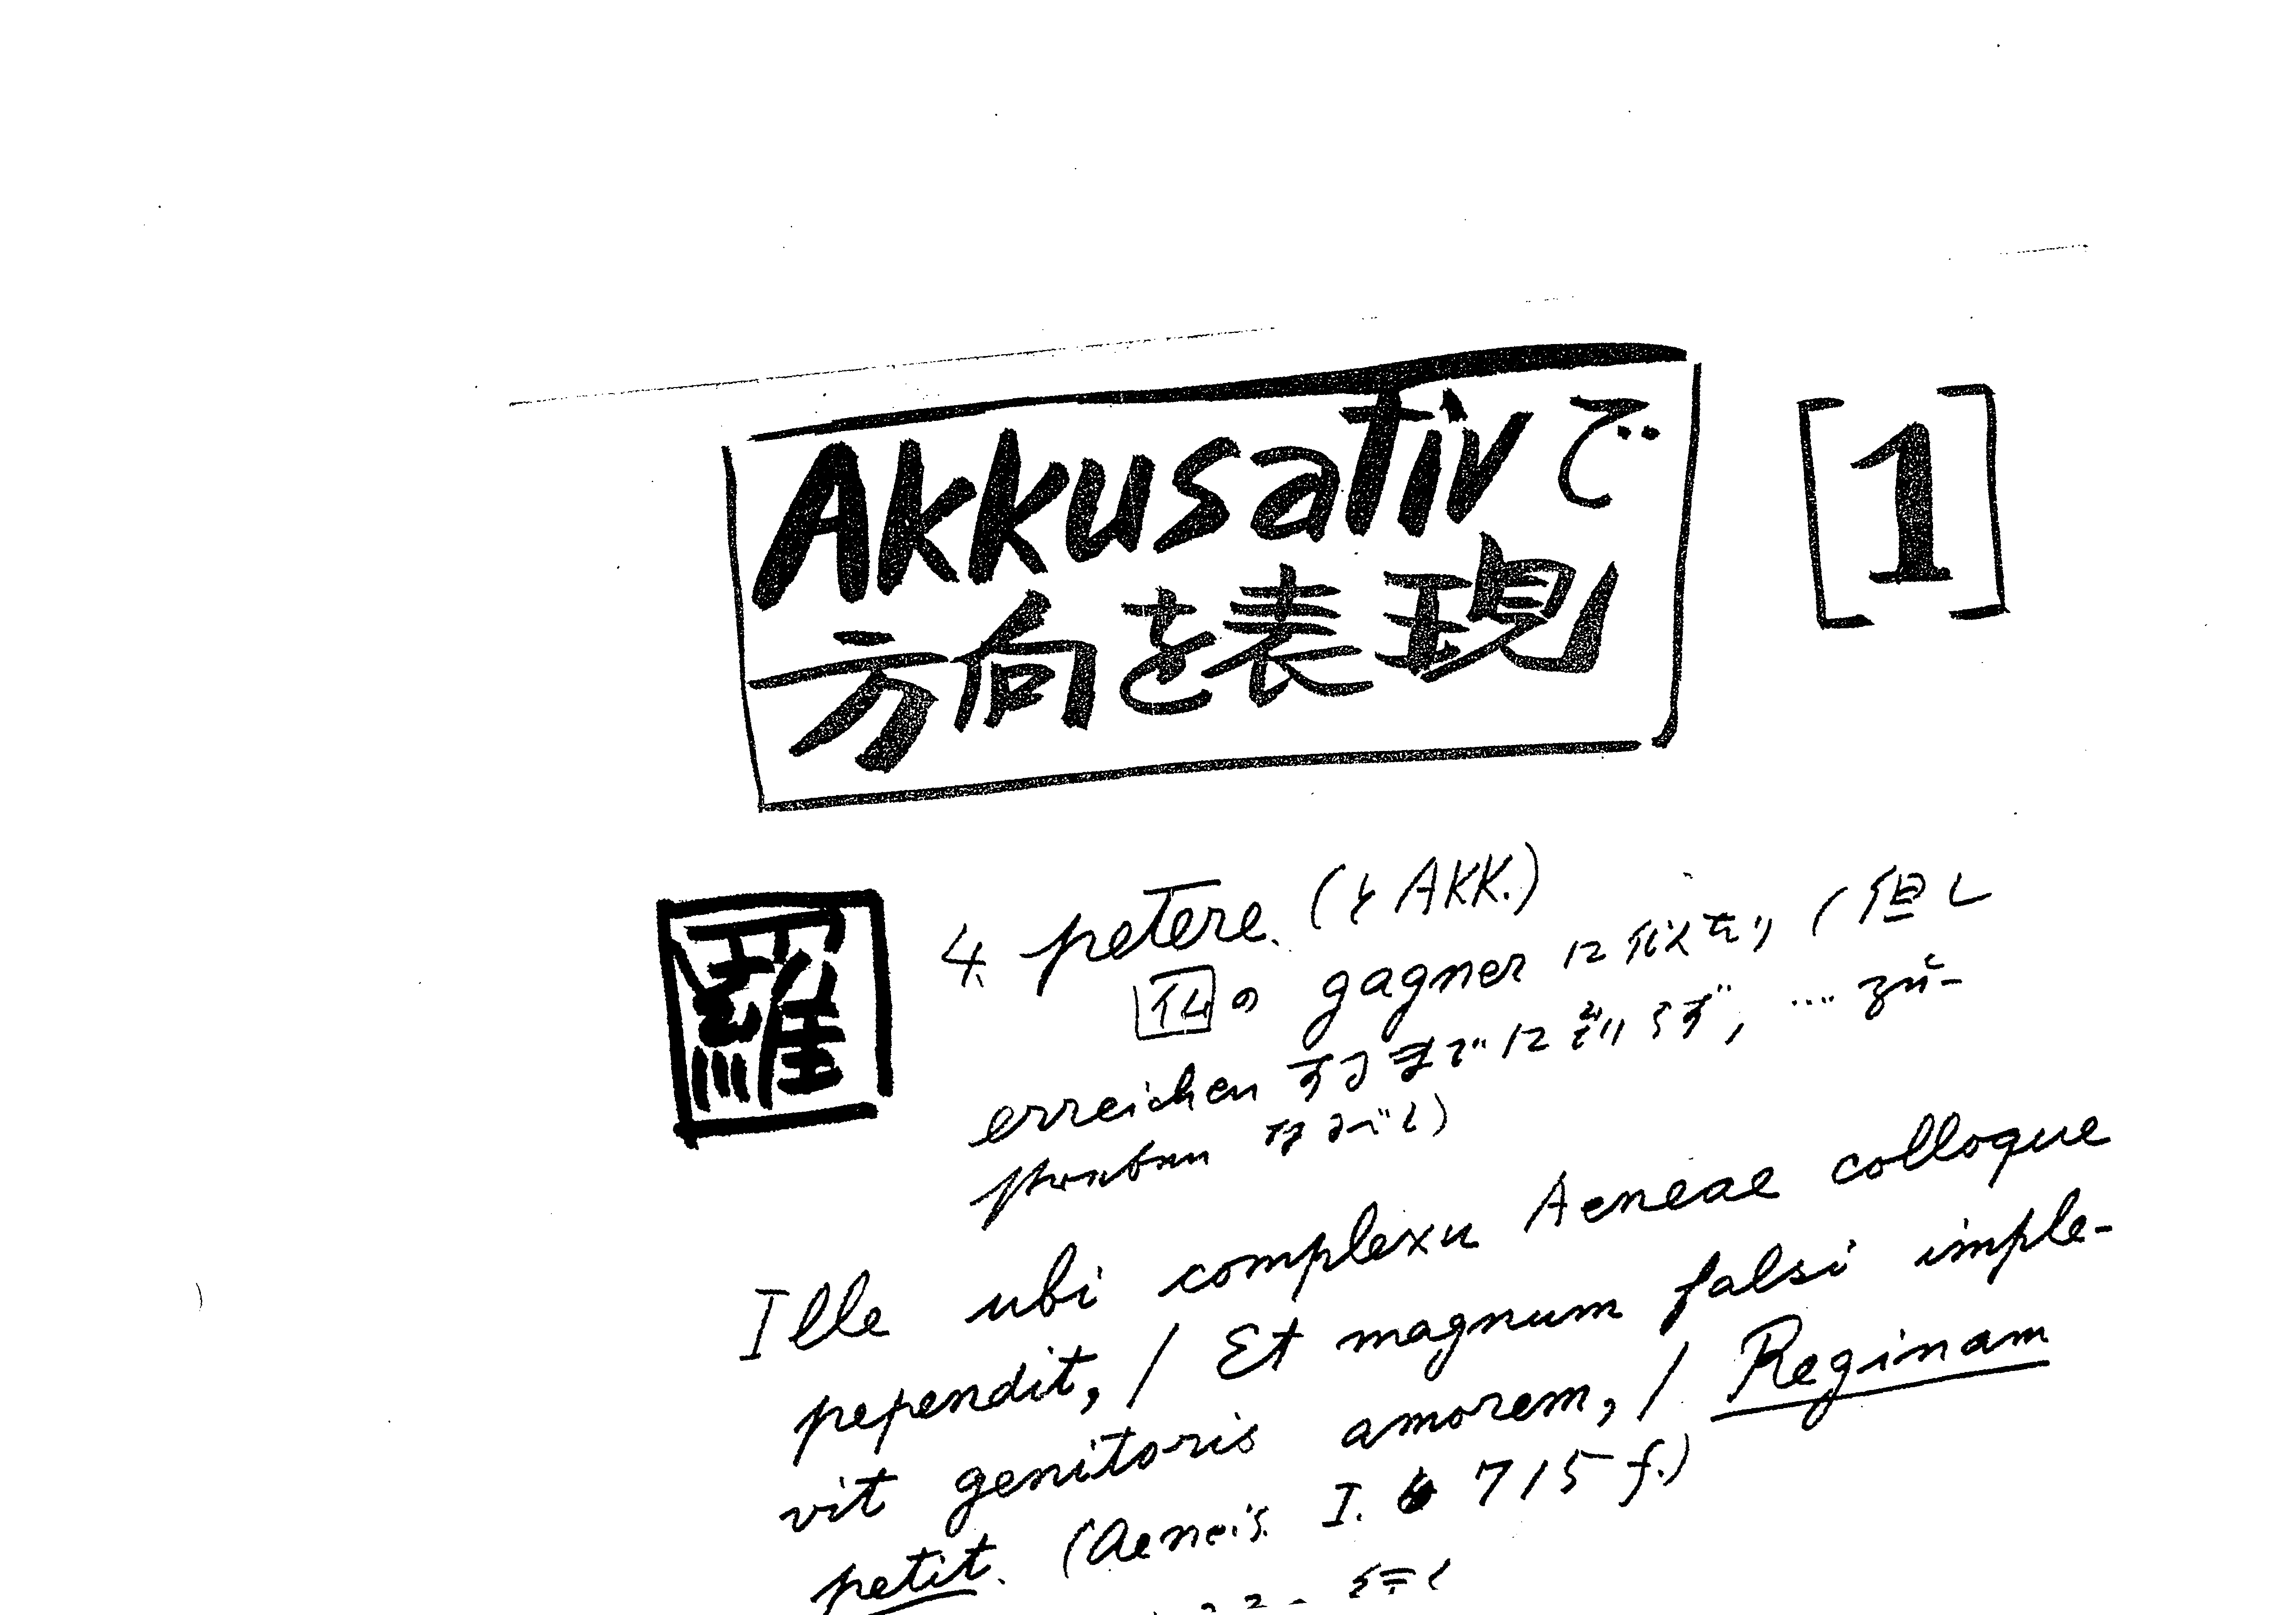 Akkusativで
方向を表現
[1]
羅
4. petere. (と AKK.)
仏の gagner に似たり (但し
erreichen するまでに到らず, .... zu-
streben なるべし)
Ille ubi complexu Aeneae colloque
pependit, / Et magnum falsi imple-
vit genitoris amorem, / Reginam
petit. (Aeneis. I. 715 f.)